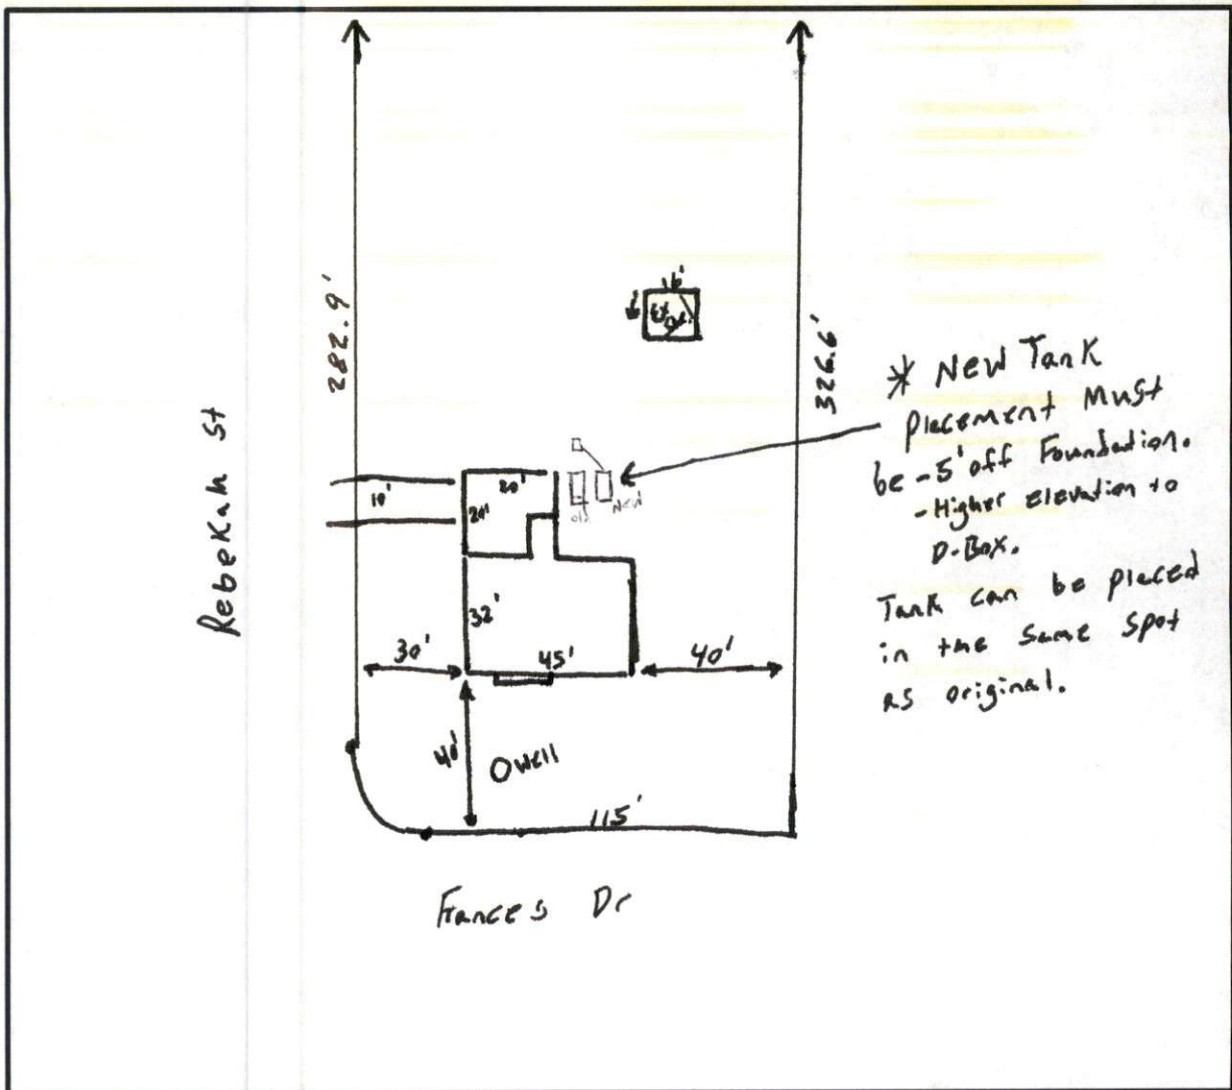 282.9'
16'
326.6'
* New Tank
Placement Must
be - 5' off Foundation.
- Higher elevation to
D-Box.
Tank can be placed
in the same spot
as original.
Rebekah St
10'
20'
20'
old
New
32'
30'
45'
40'
40'
O well
115'
Frances Dr